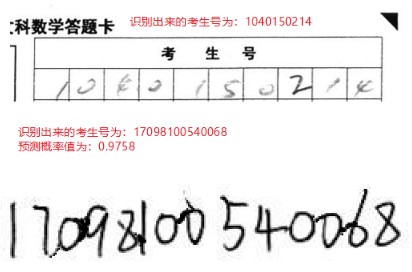 文科数学答题卡 识别出来的考生号为：1040150214
考 生 号
1040150214
识别出来的考生号为：17098100540068
预测概率值为：0.9758
17098100540068